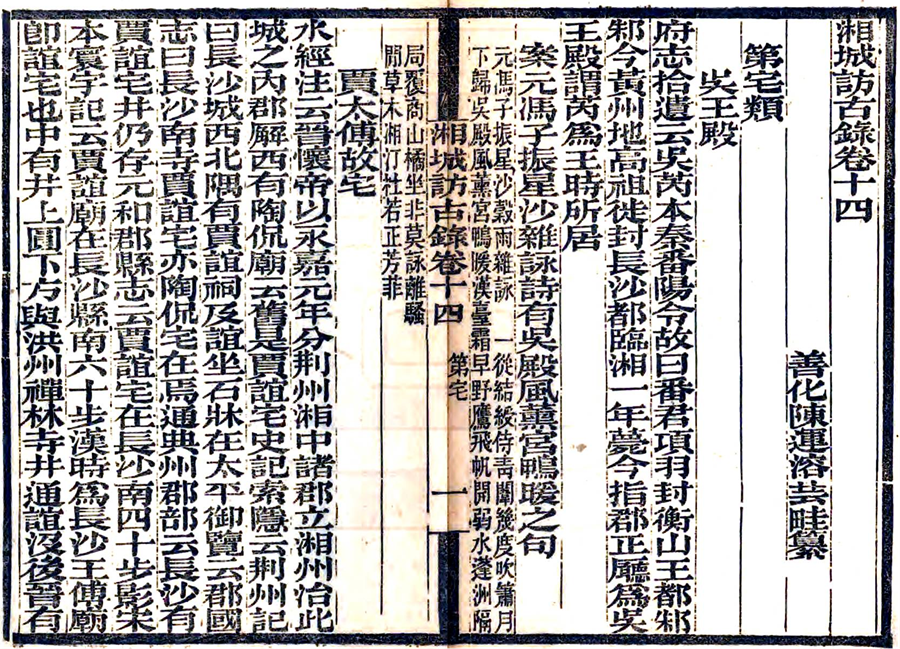 湘城訪古錄卷十四
善化陳運溶芸畦纂
第宅類
吳王殿
府志拾遺云吳芮本秦番陽令故曰番君項羽封衡山王都邾
邾今黃州地高祖徙封長沙都臨湘一年薨今指郡正廳爲吳
王殿謂芮爲王時所居
案元馮子振星沙雜詠詩有吳殿風薰宮鴨暖之句
元馮子振星沙穀雨雜詠 一從結綬侍靑闈幾度吹簫月
下歸吳殿風薰宮鴨暖漢臺霜早野鷹飛帆開弱水蓬洲隔
湘城訪古錄卷十四 第宅 一
局覆商山橘坐非莫詠離騷
閒草木湘汀杜若正芳菲
賈太傅故宅
水經注云晉懷帝以永嘉元年分荆州湘中諸郡立湘州治此
城之內郡廨西有陶侃廟云舊是賈誼宅史記索隱云荆州記
曰長沙城西北隅有賈誼祠及誼坐石牀在太平御覽云郡國
志曰長沙南寺賈誼宅亦陶侃宅在焉通典州郡部云長沙有
賈誼宅井仍存元和郡縣志云賈誼宅在長沙南四十步影宋
本寰宇記云賈誼廟在長沙縣南六十步漢時爲長沙王傅廟
卽誼宅也中有井上圓下方與洪州禪林寺井通誼沒後晉有